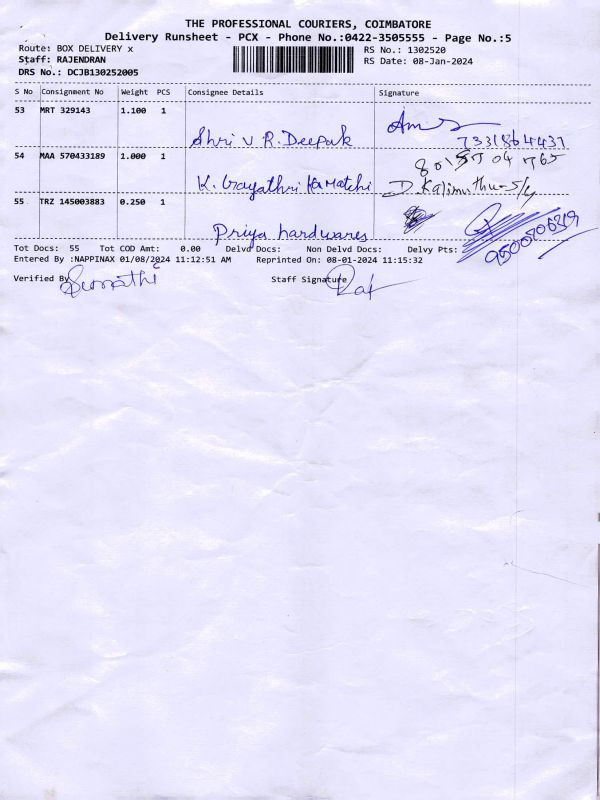 THE PROFESSIONAL COURIERS, COIMBATORE
Delivery Runsheet - PCX - Phone No.:0422-3505555 - Page No.:5
Route: BOX DELIVERY x RS No.: 1302520
Staff: RAJENDRAN RS Date: 08-Jan-2024
DRS No.: DCJB130252005
S No Consignment No Weight PCS Consignee Details Signature
53 MRT 329143 1.100 1
Shri V R. Deepak 7331864437
54 MAA 570433189 1.000 1 8015704765
K. Gayathri Kamatchi D. Kalimuthu
55 TRZ 145003883 0.250 1
Priya hardwares
Tot Docs: 55 Tot COD Amt: 0.00 Delvd Docs: Non Delvd Docs: Delvy Pts:
Entered By :NAPPINAX 01/08/2024 11:12:51 AM Reprinted On: 08-01-2024 11:15:32
Verified By Sumathi Staff Signature